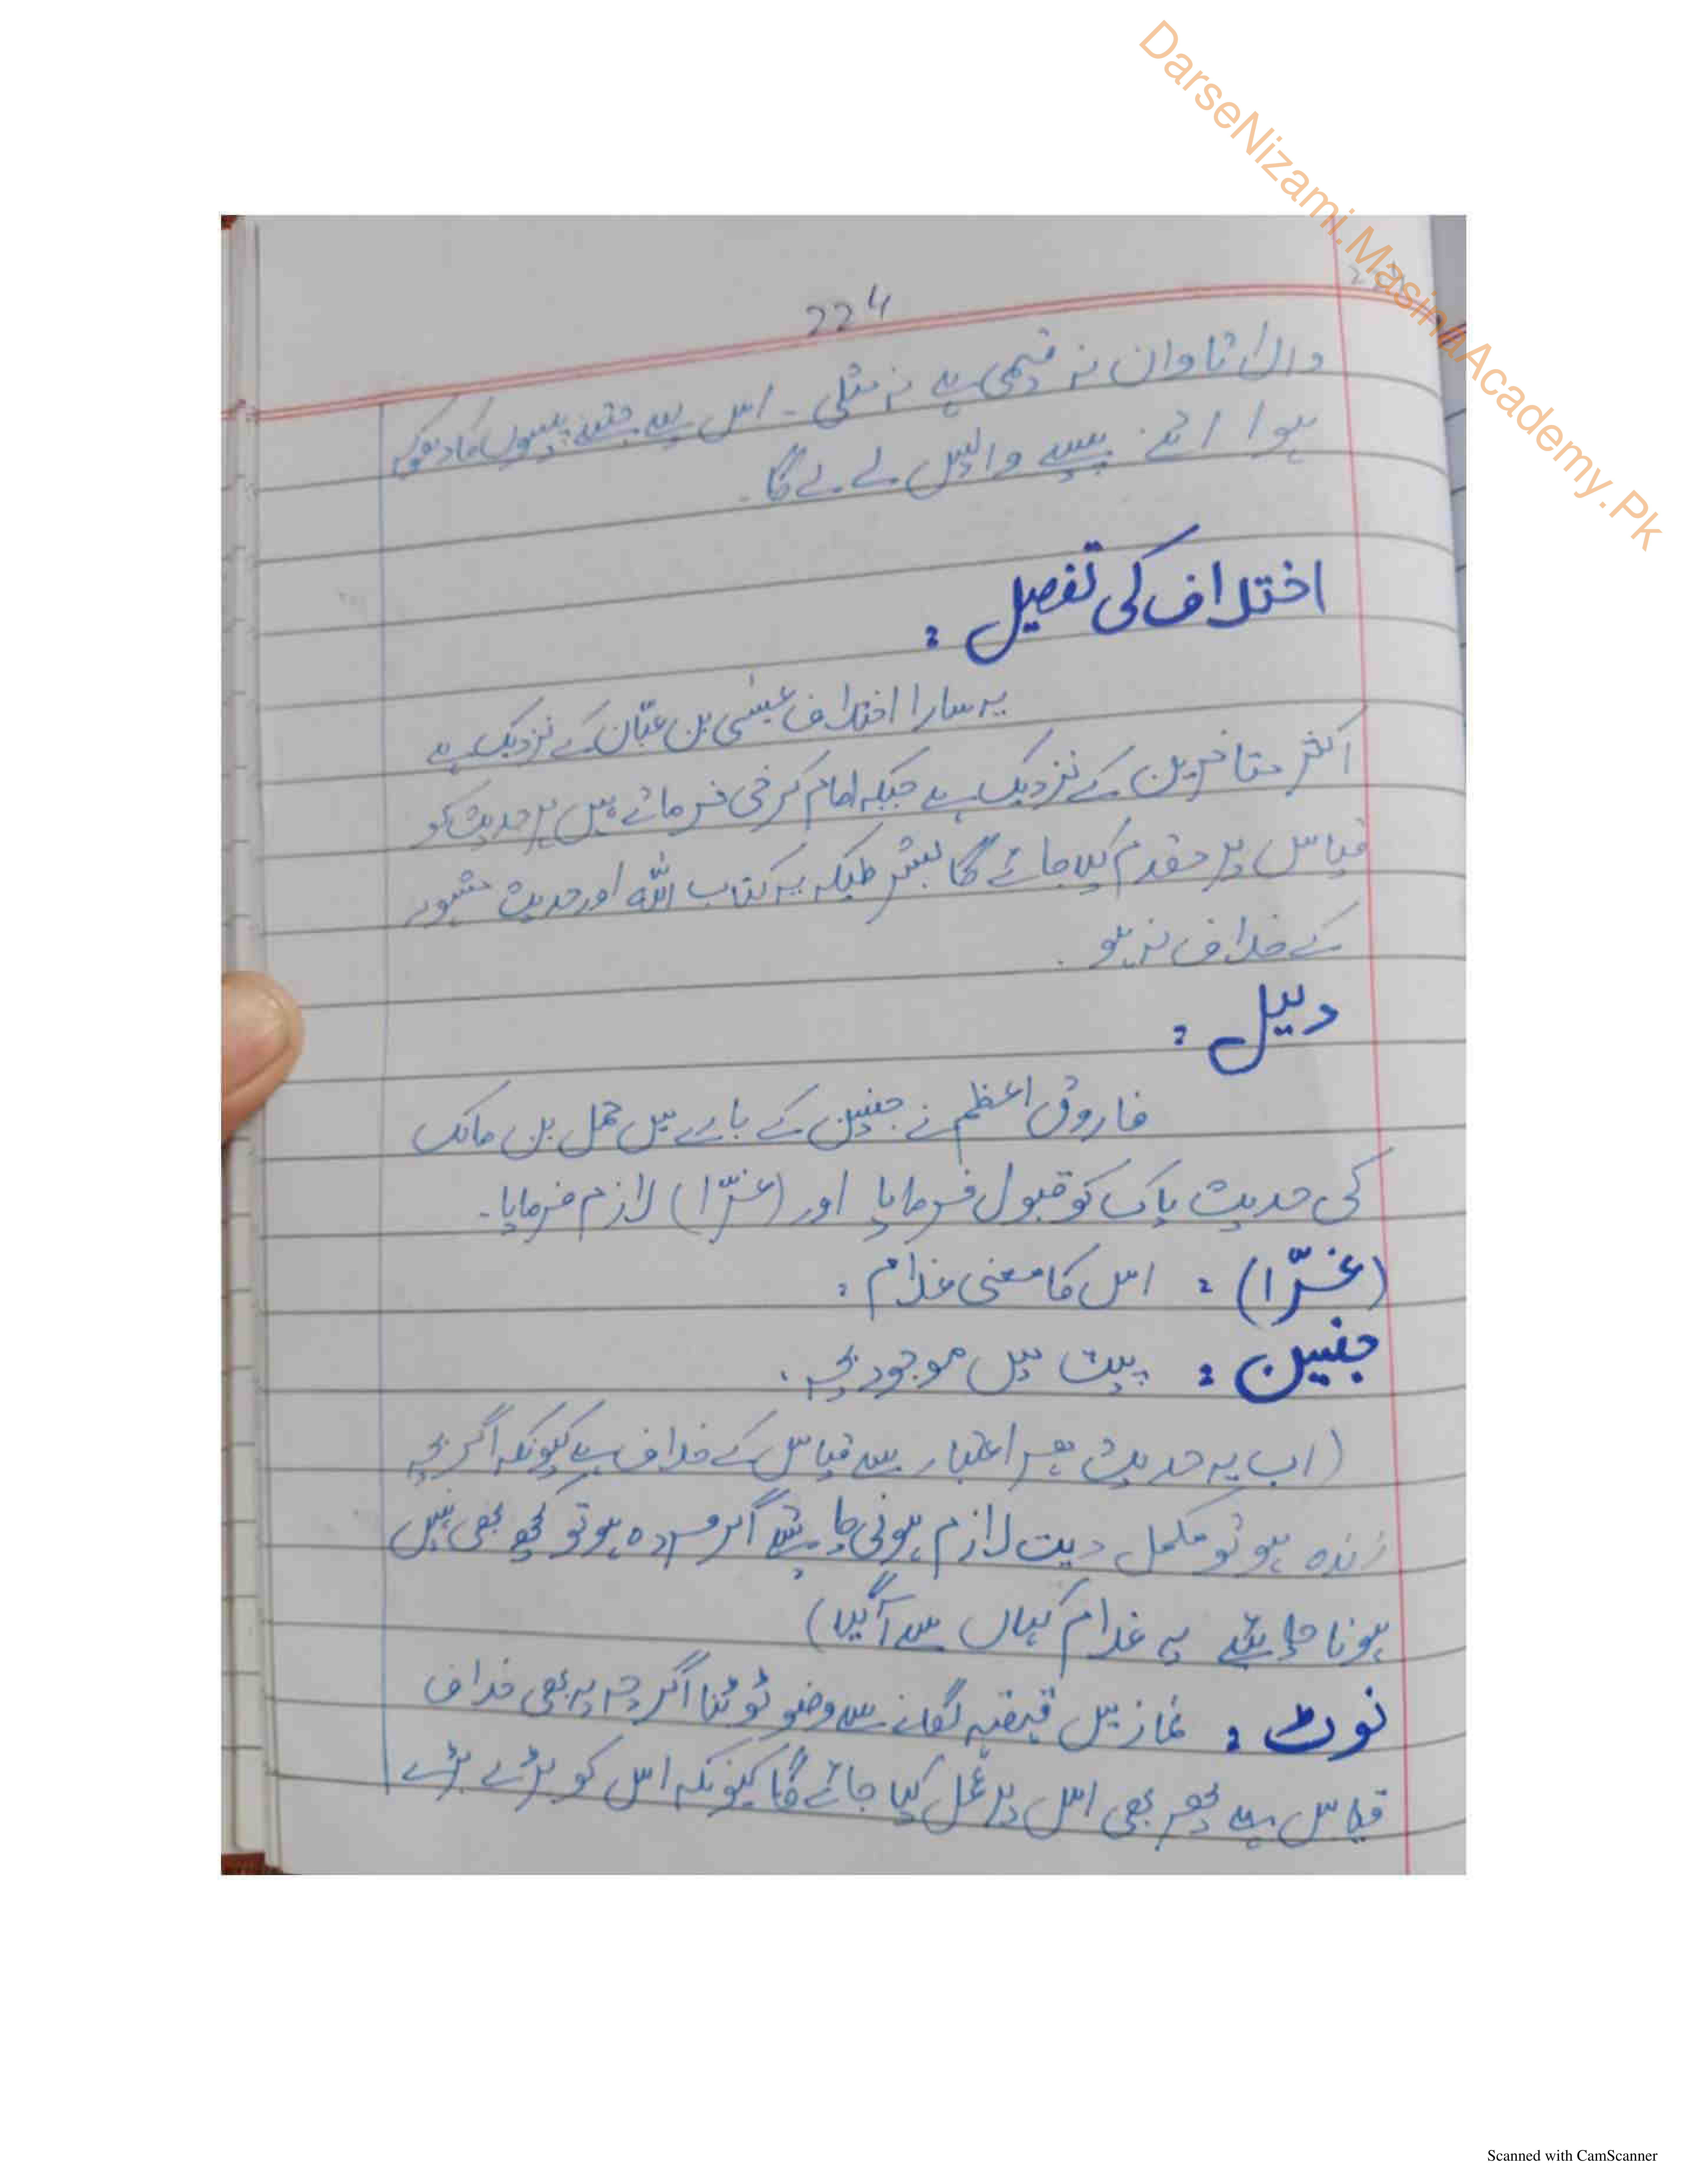 DarseNizami.MasihaAcademy.Pk
224
والا تاوان نہ قیمی ہے نہ مثلی ۔ اس سے جتنے پیسوں کا دھوکہ
ہوا اتنے پیسے واپس لے لے گا ۔
اختلاف کی تفصیل :
یہ سارا اختلاف عیسٰی بن عبّان کے نزدیک ہے
اکثر متاخرین کے نزدیک ہے جبکہ امام کرخی فرماتے ہیں ہر حدیث کو
قیاس پر مقدم کیا جائے گا بشرطیکہ یہ کتاب اللہ اور حدیث مشہور
کے خلاف نہ ہو ۔
دلیل :
فاروق اعظم نے جنین کے بارے میں حمل بن مالک
کی حدیث پاک کو قبول فرمایا اور (غرّا) لازم فرمایا ۔
(غرّا) : اس کا معنی غلام :
جنین : پیٹ میں موجود بچہ ۔
(اب یہ حدیث ہر اعتبار سے قیاس کے خلاف ہے کیونکہ اگر بچہ
زندہ ہو تو مکمل دیت لازم ہونی چاہئے اگر مردہ ہو تو کچھ بھی نہیں
ہونا چاہئے یہ غلام کہاں سے آگیا)
نوٹ : نماز میں قہقہہ لگانے سے وضو ٹوٹنا اگرچہ یہ بھی خلاف
قیاس ہے پھر بھی اس پر عمل کیا جائے گا کیونکہ اس کو بڑے بڑے
Scanned with CamScanner